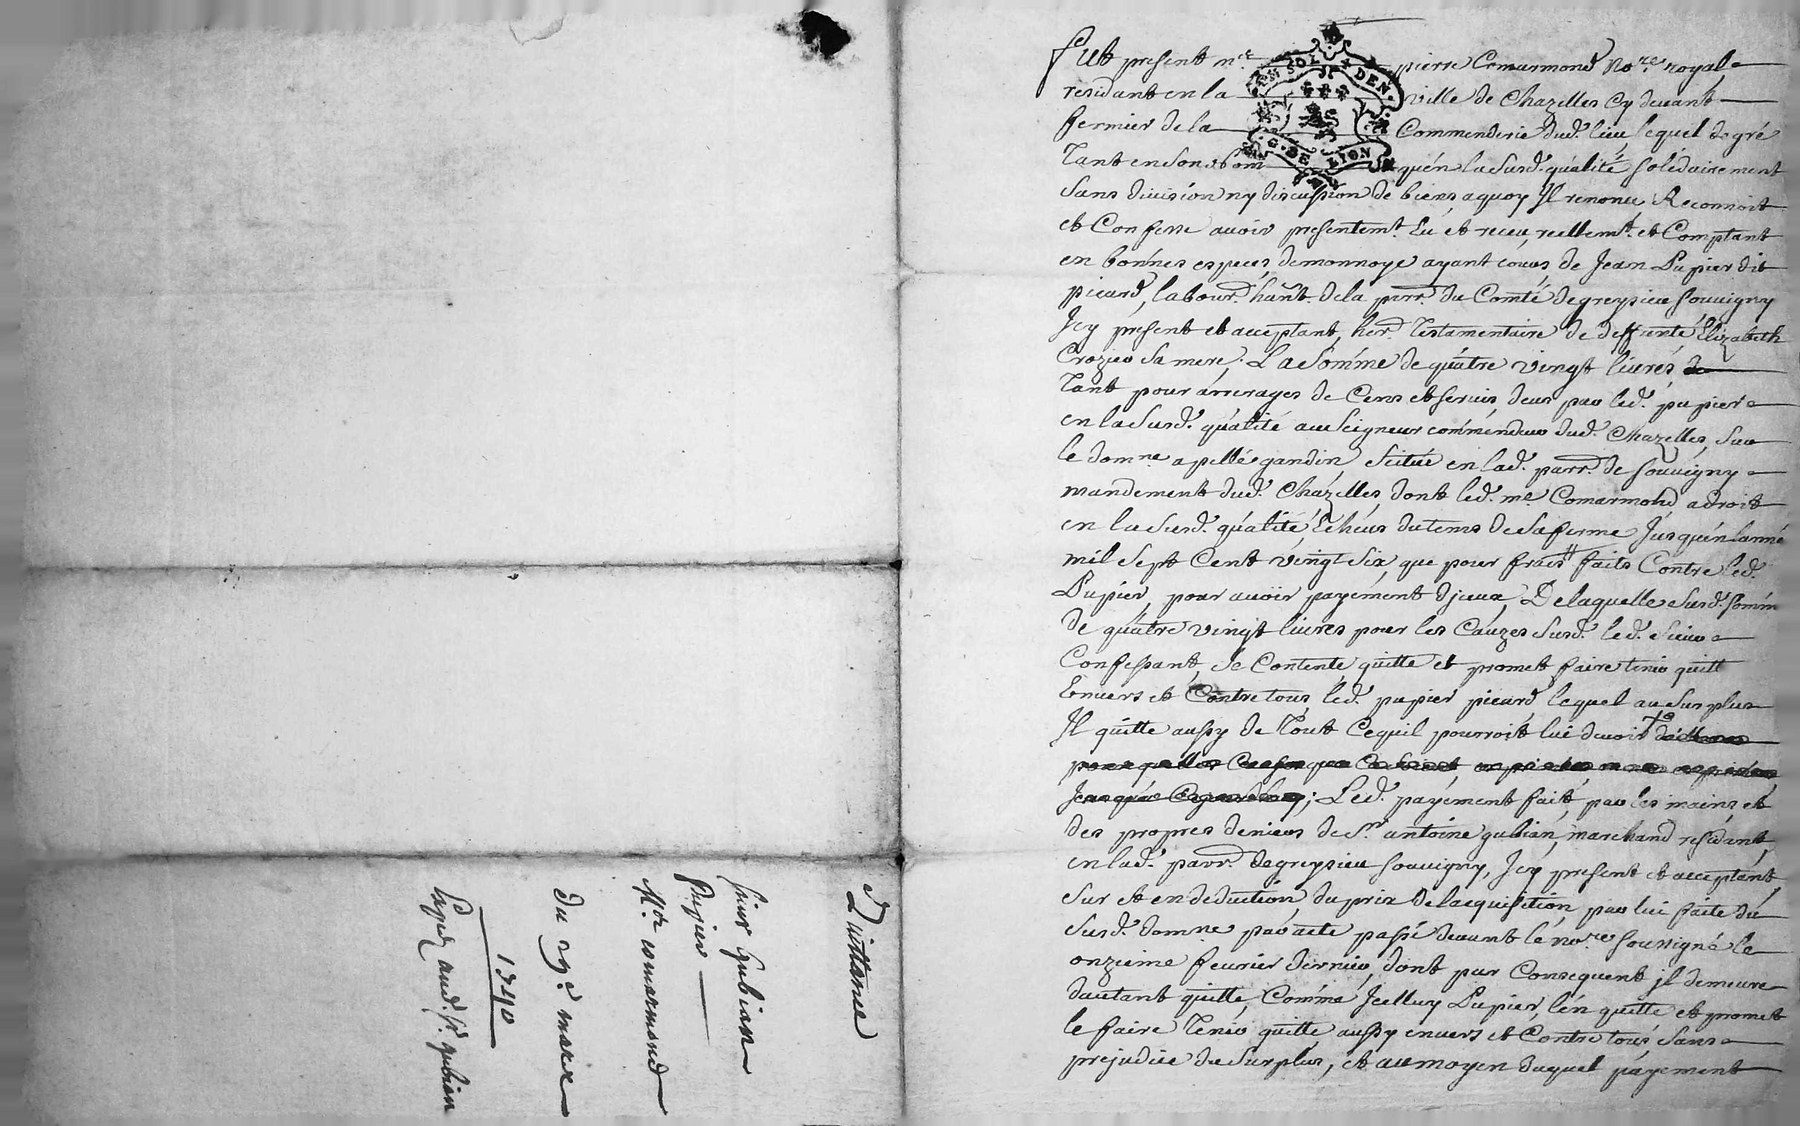 Quittance
sieur Gubian
Pupier
Mre comarmond
du 29e mars
1740
pour aud. sr. gubian
Fut present me. pierre Comarmond No.re royal
residant en la ville de Chazelles Cy devant
fermier de la Commenderie dud. lieu, lequel de gré
Tant en son nom qu'en la susd. qualité solidairement
sans division ny discussion de biens a quoy Il renonce Reconnoit
et Confesse avoir presentemt. Eu et receu, reellemt. et Comptant
en bonnes especes, de monnoye ayant cours, de Jean Pupier dit
picard, labour. hant. de la parr. du Comté de greysieu souvigny
Icy present et acceptant, her. Testamentaire de deffunte Elizabeth
Crozier sa mere, La somme de quatre vingt livres,
Tant pour arrerages de Cens et servis deus par led. pupier
en la susd. qualité au seigneur commendeur dud. Chazelles, sur
le domne apellé gandin, scitué en lad. parr. de souvigny
mandement dud. Chazelles, dont led. me Comarmond a droit
en la susd. qualité, Echeus du tems de sa ferme Jusqu'en lanné
mil sept Cent vingt six que pour frais faits Contre led.
Pupier, pour avoir payement d'jceux, De laquelle susd. somm
de quatre vingt livres pour les Causes susd. led. sieur
Confessant, se Contente quitte et promet faire tenir quitt
Envers et Contre tous, led. pupier picard lequel au surplus
Il quitte aussy de Tout Cequil pourroit lui devoir
Led. payement fait, par les mains et
des propres deniers de sr. antoine gubian, marchand residant,
en lad. parr. de greysieu souvigny, Icy present et acceptant,
sur et en deduction du prix de lacquisition, par lui faite du
susd. domne par acte passé devant le no.re soussigné le
onzieme fevrier dernier, dont par Consequent jl demeure
dautant quitte, Comme Icelluy Pupier, l'en quitte et promet
le faire Tenir quitte, aussy envers et Contre tous, sans
prejudice du surplus, et au moyen duquel payement